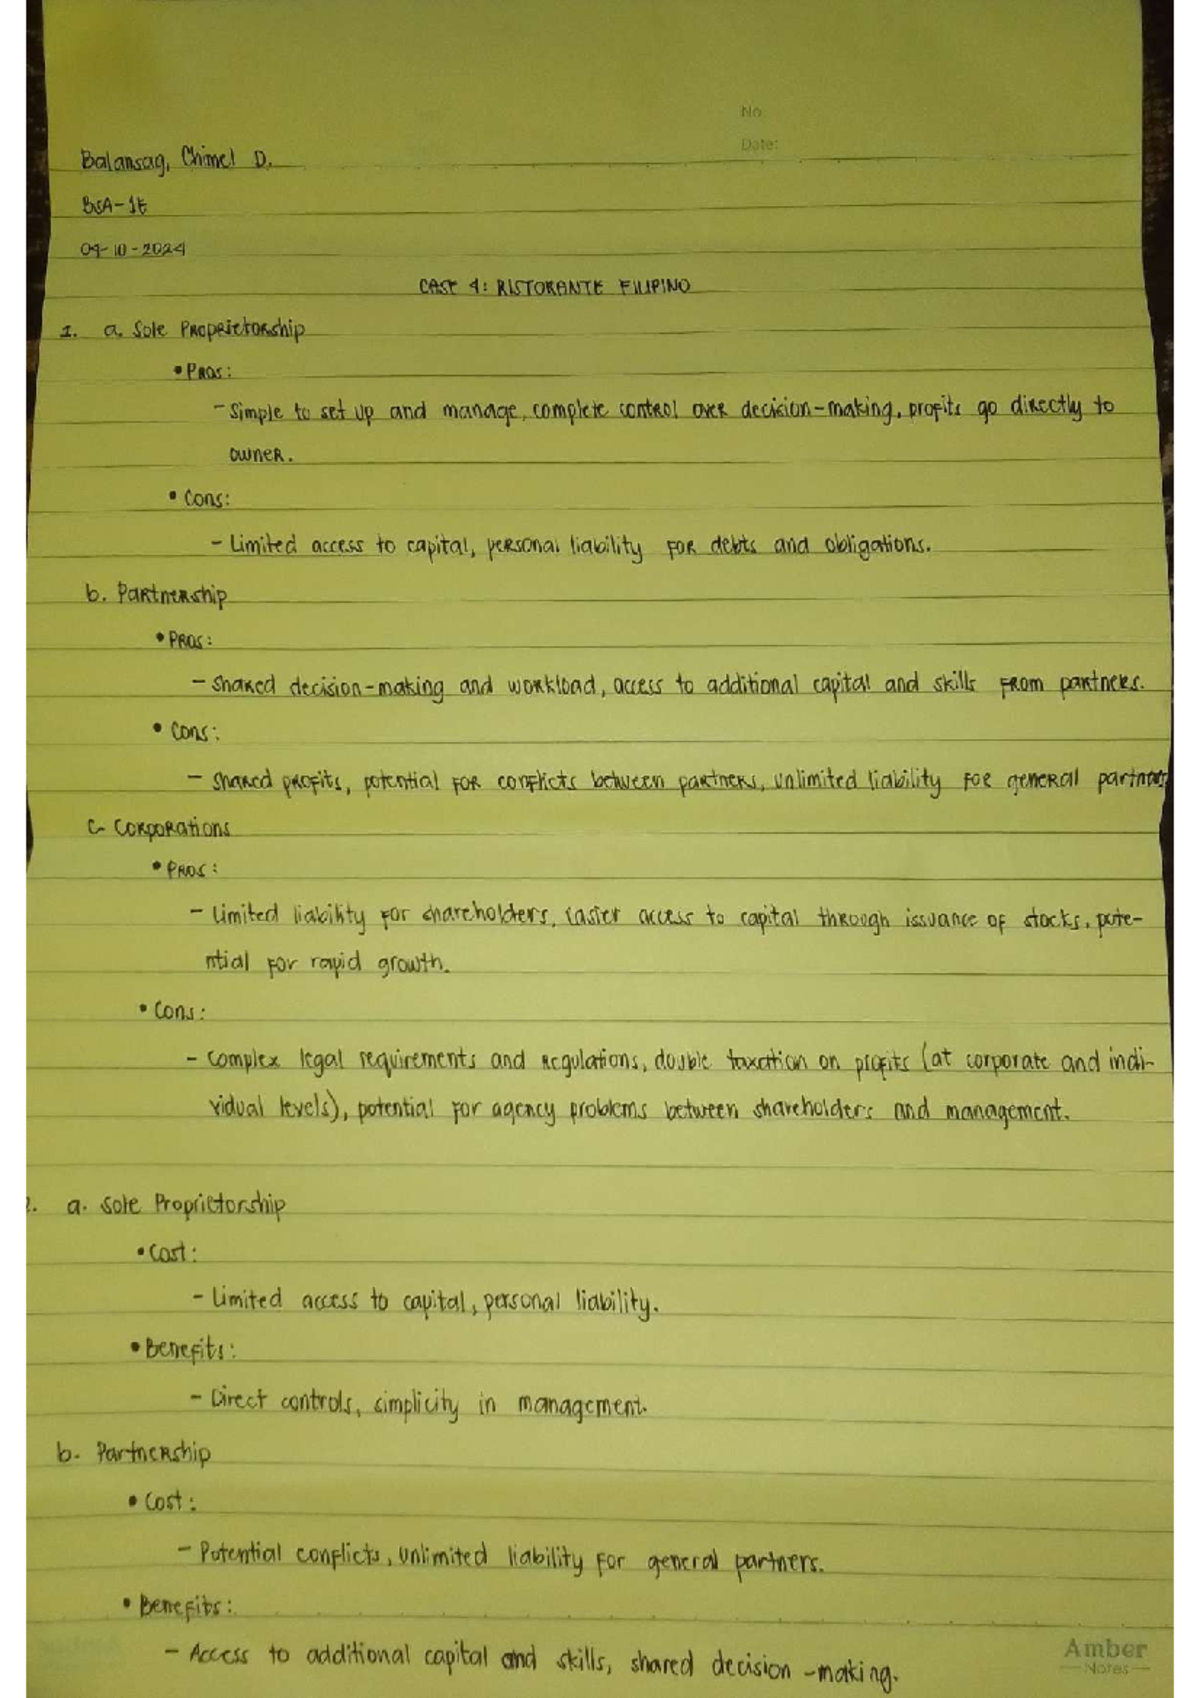 No
Date:
Balansag, Chimel D.
BSA-1E
09-10-2024
CASE 4: RISTORANTE FILIPINO
1. a. Sole Proprietorship
• Pros:
- Simple to set up and manage, complete control over decision-making, profits go directly to
owner.
• Cons:
- Limited access to capital, personal liability for debts and obligations.
b. Partnership
• Pros:
- Shared decision-making and workload, access to additional capital and skills from partners.
• Cons:
- Shared profits, potential for conflicts between partners, unlimited liability for general partners
c- Corporations
• Pros:
- Limited liability for shareholders, easier access to capital through issuance of stocks, pote-
ntial for rapid growth.
• Cons:
- Complex legal requirements and regulations, double taxation on profits (at corporate and indi-
vidual levels), potential for agency problems between shareholders and management.
2. a. Sole Proprietorship
• Cost:
- Limited access to capital, personal liability.
• Benefits:
- Direct controls, simplicity in management.
b. Partnership
• Cost:
- Potential conflicts, unlimited liability for general partners.
• Benefits:
- Access to additional capital and skills, shared decision-making.
Amber
Notes